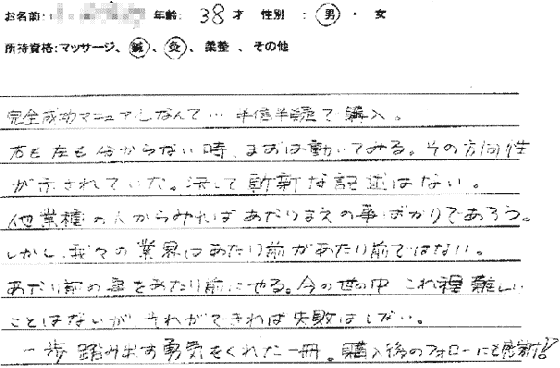 お名前: 年齢: 38才 性別 : 男 ・ 女
所持資格:マッサージ、鍼、灸、柔整 、その他
完全成功マニュアルなんて… 半信半疑で購入。
右も左も分からない時、まずは動いてみる。その方向性
が示されていた。決して斬新な記述はない。
他業種の人からみればあたりまえの事ばかりであろう。
しかし、我々の業界はあたり前があたり前ではない。
あたり前の事をあたり前にやる。今の世の中 これ程難しい
ことはないが それができれば失敗はしない。
一歩踏み出す勇気をくれた一冊。購入後のフォローにも感謝!!